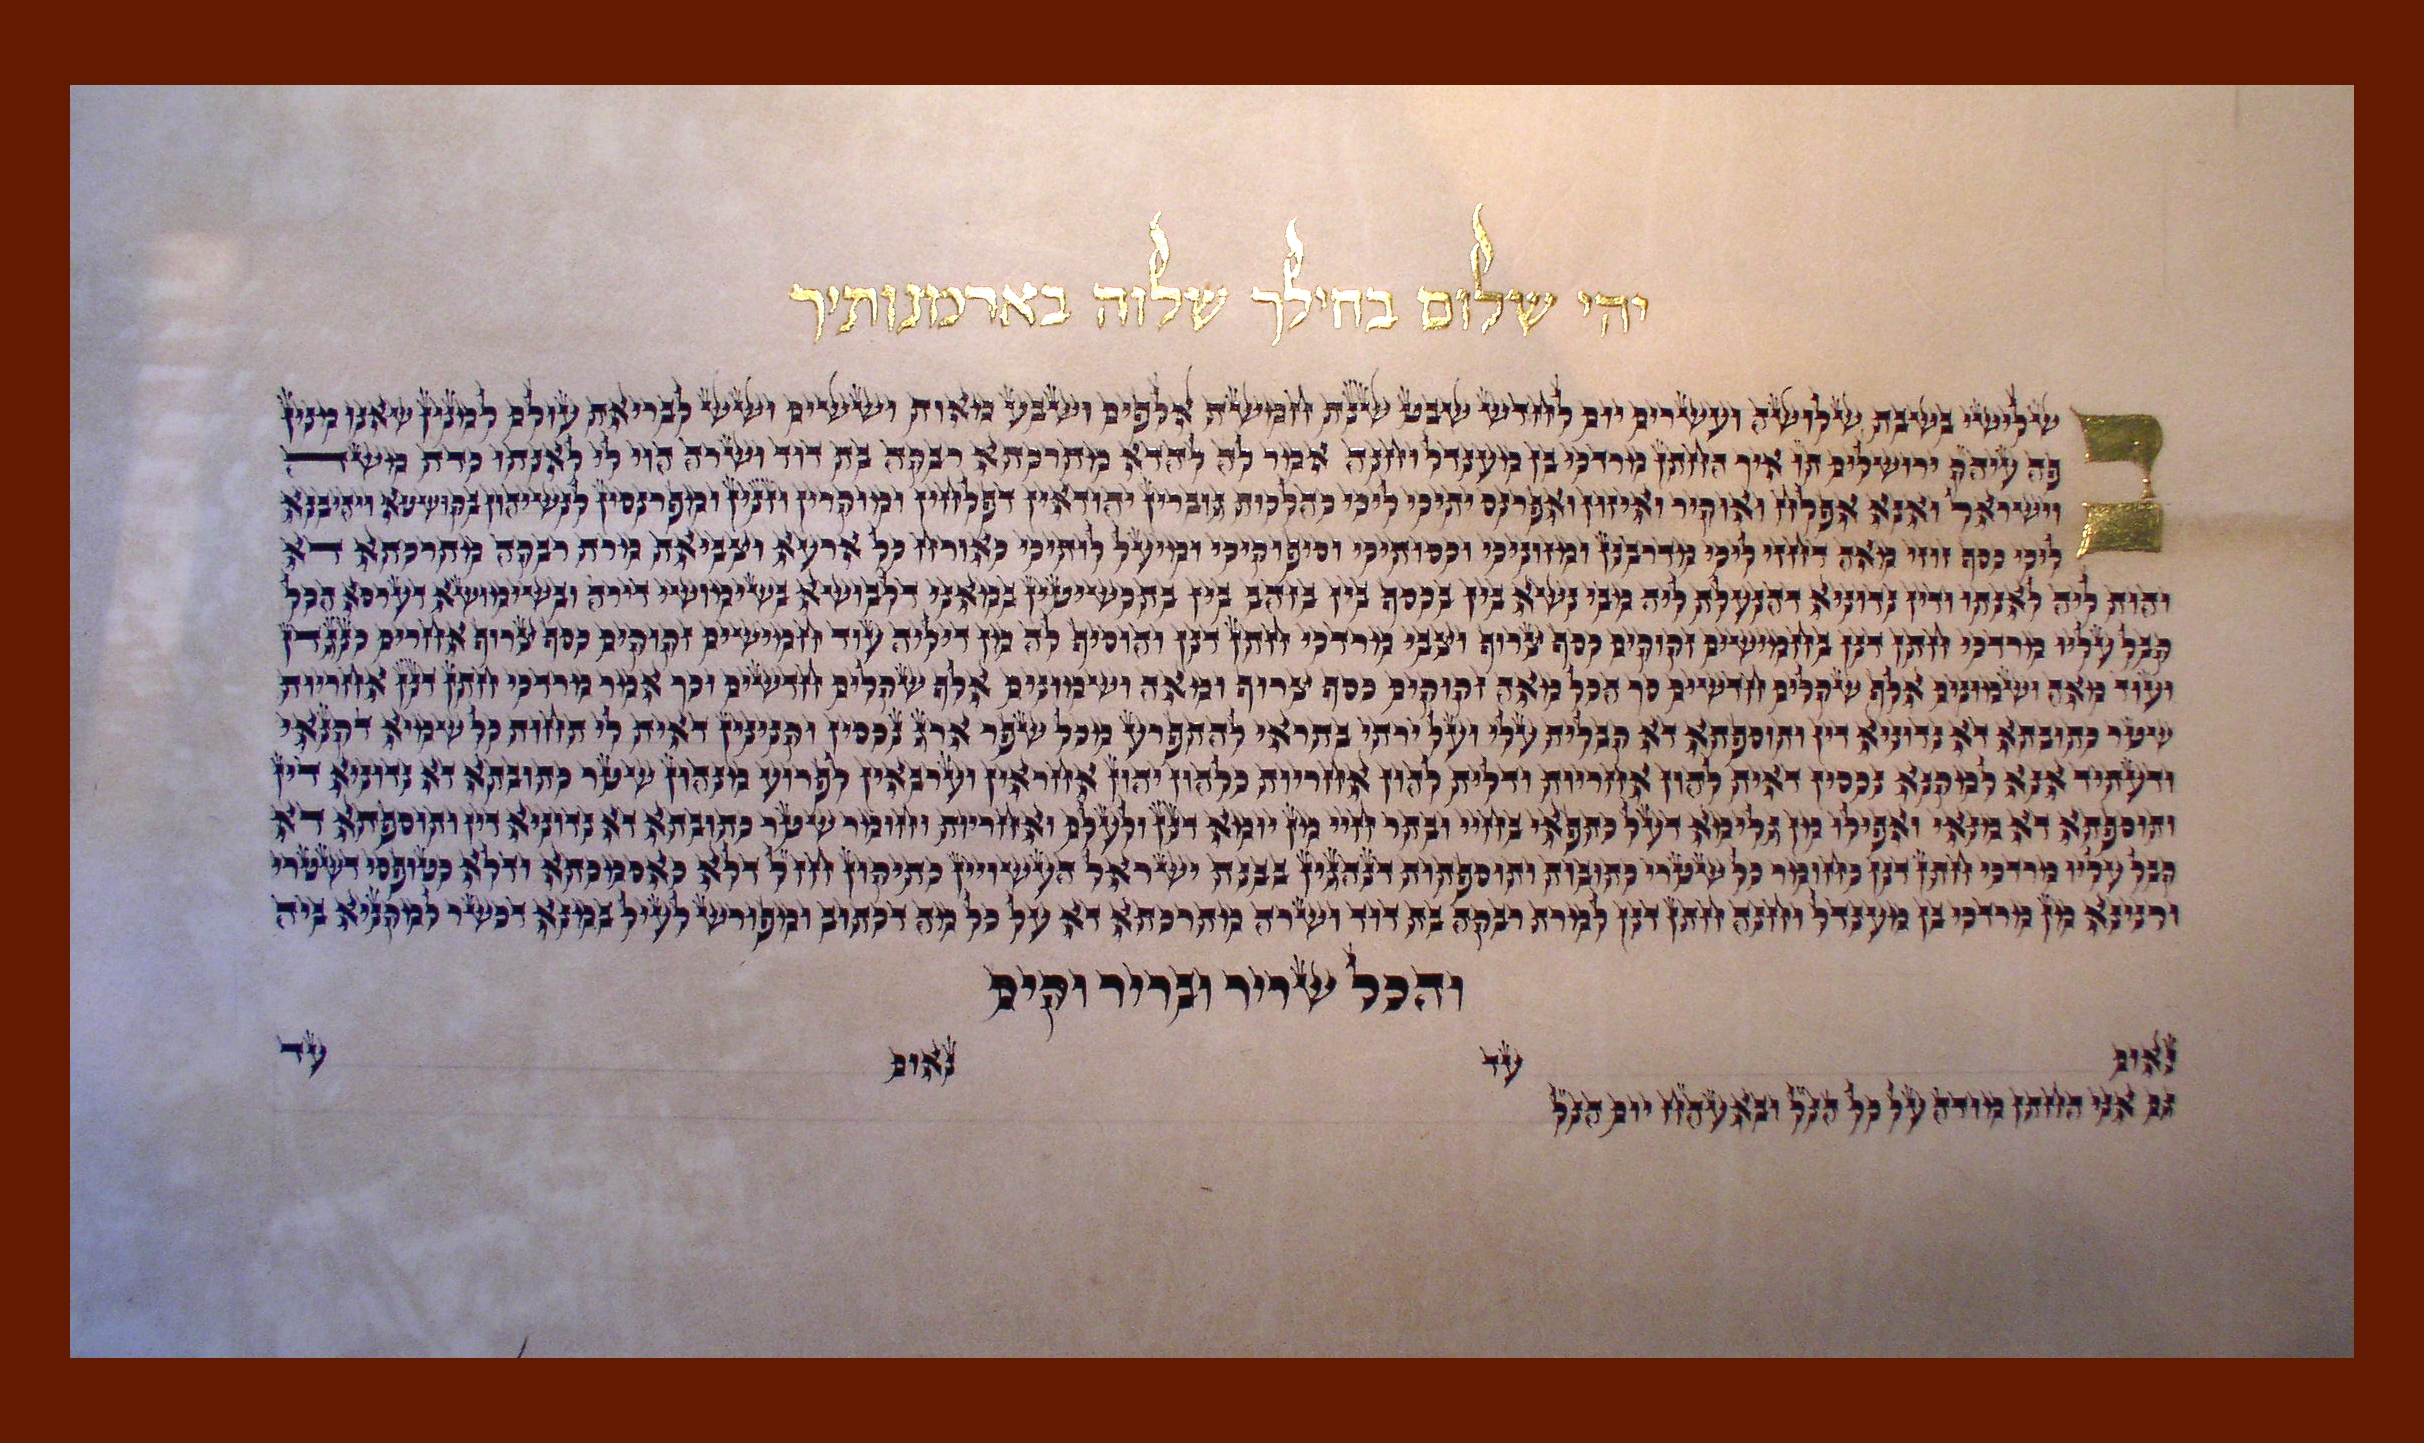 יהי שלום בחילך שלוה בארמנותיך
בשלישי בשבת שלושה ועשרים יום לחודש שבט שנת חמשת אלפים ושבע מאות וששים ושש לבריאת עולם למנין שאנו מנין
פה עיהק ירושלים תו איך החתן מרדכי בן מענדל וחנה אמר לה להדא מתרכתא רבקה בת דוד ושרה הוי לי לאנתו כדת משה
וישראל ואנא אפלח ואוקיר ואיזון ואפרנס יתיכי ליכי כהלכות גוברין יהודאין דפלחין ומוקרין וזנין ומפרנסין לנשיהון בקושטא ויהיבנא
ליכי כסף זוזי מאה דחזי ליכי מדרבנן ומזוניכי וכסותיכי וסיפוקיכי ומיעל לותיכי כאורח כל ארעא וצביאת מרת רבקה מתרכתא דא
והות ליה לאנתו ודין נדוניא דהנעלת ליה מבי נשא בין בכסף בין בזהב בין בתכשיטין במאני דלבושא בשימושי דירה ובשימושא דערסא הכל
קבל עליו מרדכי חתן דנן בחמישים זקוקים כסף צרוף וצבי מרדכי חתן דנן והוסיף לה מן דיליה עוד חמישים זקוקים כסף צרוף אחרים כנגדן
ועוד מאה ושמונים אלף שקלים חדשים סך הכל מאה זקוקים כסף צרוף ומאה ושמונים אלף שקלים חדשים וכך אמר מרדכי חתן דנן אחריות
שטר כתובתא דא נדוניא דין ותוספתא דא קבלית עלי ועל ירתי בתראי להתפרע מכל שפר ארג נכסין וקנינין דאית לי תחות כל שמיא דקנאי
ודעתיד אנא למקנא נכסין דאית להון אחריות ודלית להון אחריות כלהון יהון אחראין וערבאין לפרוע מנהון שטר כתובתא דא נדוניא דין
ותוספתא דא מנאי ואפילו מן גלימא דעל כתפאי בחיי ובתר חיי מן יומא דנן ולעלם ואחריות וחומר שטר כתובתא דא נדוניא דין ותוספתא דא
קבל עליו מרדכי חתן דנן כחומר כל שטרי כתובות ותוספתות דנהגין בבנת ישראל העשויין כתיקון חזל דלא כאסמכתא ודלא כטופסי דשטרי
וקנינא מן מרדכי בן מענדל וחנה חתן דנן למרת רבקה בת דוד ושרה מתרכתא דא על כל מה דכתוב ומפורש לעיל במנא דכשר למקניא ביה
והכל שריר ובריר וקים
נאום עד נאום עד
גם אני החתן מודה על כל הנל ובאעהח יום הנל